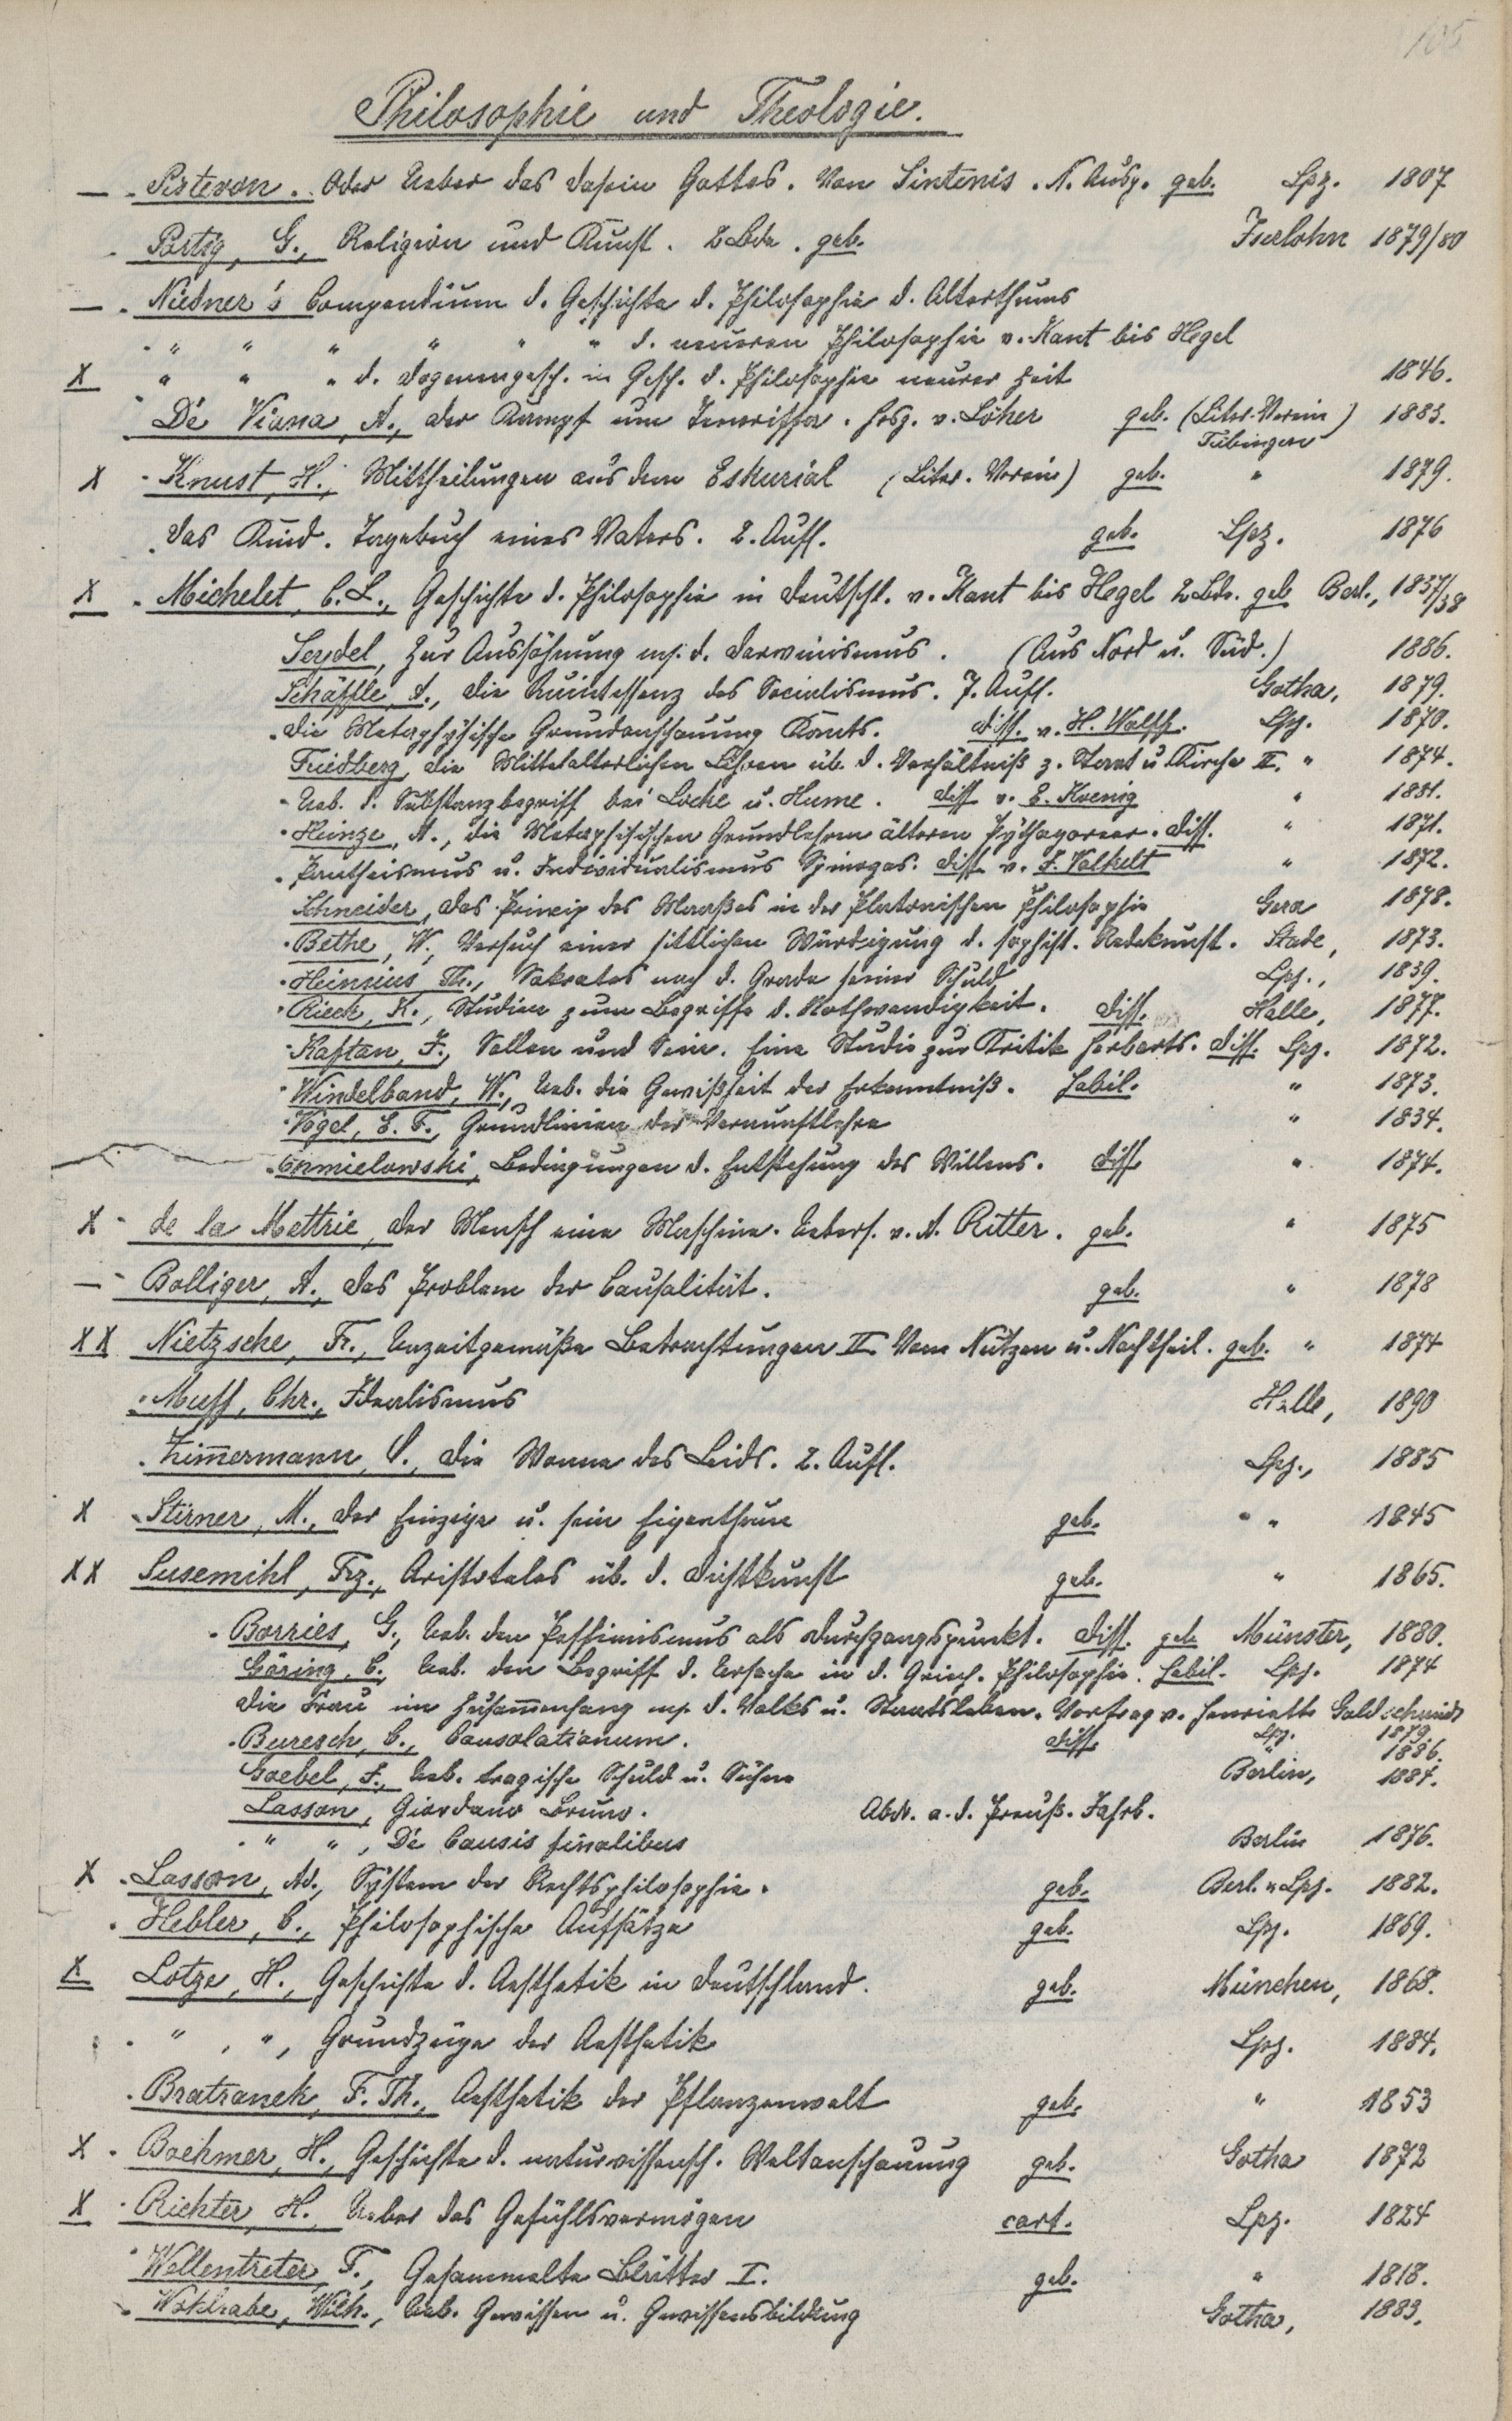 105
Philosophie und Theologie.
— Pisteron. Oder Ueber das Dasein Gottes. Von Sintenis. N. Ausg. geb. Lpz. 1807
Portig, G., Religion und Kunst. 2 Bde. geb. Iserlohn 1879/80
— Niedner's Compendium d. Geschichte d. Philosophie d. Alterthums
" " " " " " d. neueren Philosophie v. Kant bis Hegel
X " " " d. Dogmengesch. in Gesch. d. Philosophie neurer Zeit 1846.
De Viana, A., der Kampf um Teneriffa. Hrsg. v. Löher geb. (Liter. Verein) 1883.
Tübingen
X Knust, H., Mittheilungen aus dem Eskurial (Liter. Verein) geb. " 1879.
Das Kind. Tagebuch eines Vaters. 2. Aufl. geb. Lpz. 1876
X Michelet, C. L., Geschichte d. Philosophie in Deutschl. v. Kant bis Hegel 2 Bde. geb Berl., 1837/38
Seydel, Zur Aussöhnung m. d. Darwinismus. (Aus Nord u. Süd.) 1886.
Schäffle, A., die Quintessenz des Socialismus. 7. Aufl. Gotha, 1879.
Die Metaphysische Grundanschauung Kants. Diss. v. H. Wolff. Lpz. 1870.
Friedberg, die Mittelalterlichen Lehren üb. d. Verhältniß z. Staat u. Kirche II. " 1874.
Ueb. d. Substanzbegriff bei Locke u. Hume. Diss v. E. Koenig " 1881.
Heinze, A., die Metaphisischen Grundlehren älteren Pythagoreer. Diss. " 1871.
Pantheismus u. Individualismus Spinozas. Diss v. J. Volkelt " 1872.
Schneider, das Princip des Maaßes in der Platonischen Philosophie Gera 1878.
Bethe, W., Versuch einer sittlichen Würdigung d. sophist. Redekunst. Stade, 1873.
Heinsius, Th., Sokrates nach d. Grade seiner Schuld Lpz., 1839.
Rieck, K., Studien zum Begriffe d. Nothwendigkeit. Diss. Halle, 1877.
Kaftan, J., Sollen und Sein. Eine Studie zur Kritik Herbarts. Diss. Lpz. 1872.
Windelband, W., Ueb. die Gewißheit der Erkenntniß. Habil. " 1873.
Vogel, E. F., Grundlinien der Vernunftlehre " 1834.
Chmielowski, Bedingungen d. Entstehung des Willens. Diss " 1874.
X de la Mettrie, der Mensch eine Maschine. Uebers. v. A. Ritter. geb. " 1875
— Bolliger, A., das Problem der Causalität. geb. " 1878
XX Nietzsche, Fr., Unzeitgemäße Betrachtungen II. Vom Nutzen u. Nachtheil. geb. " 1874
Muff, Chr., Idealismus Halle, 1890
Zimmermann, O., die Wonne des Leids. 2. Aufl. Lpz., 1885
X Stirner, M., der Einzige u. sein Eigenthum geb. " " 1845
XX Susemihl, Frz., Aristoteles üb. d. Dichtkunst geb. " 1865.
Borries, G., Ueb. den Pessimismus als Durchgangspunkt. Diss. geb Münster, 1880.
Göring, C., Ueb. den Begriff d. Ursache in d. Griech. Philosophie. Habil. Lpz. 1874
die Frau im Zusam̄enhang m. d. Volks u. Staatsleben. Vortrag v. Henriette Goldschmidt
Lpz. 1879.
Buresch, C., Consolationum. Diss. 1886.
Goebel, F., Ueb. tragische Schuld u. Sühne Berlin, 1884.
Lasson, Giordano Bruno. Abdr. a. d. Preuß. Jahrb.
" ", De Causis finalibus Berlin 1876.
X Lasson, Ad., System der Rechtsphilosophie. geb. Berl. u Lpz. 1882.
Hebler, C., Philosophische Aufsätze geb. Lpz. 1869.
X Lotze, H., Geschichte d. Aesthetik in Deutschland. geb. München, 1868.
" , ", Grundzüge der Aesthetik Lpz. 1884.
Bratranek, F. Th., Aesthetik der Pflanzenwelt geb. " 1853
X Boehmer, H., Geschichte d. naturwissensch. Weltanschauung geb. Gotha 1872
X Richter, H. Ueber das Gefühlsvermögen cart. Lpz. 1824
Wellentreter, F., Gesammelte Blätter I. geb. " 1818.
Wohlrabe, Wilh., Ueb. Gewissen u. Gewissensbildung Gotha, 1883.